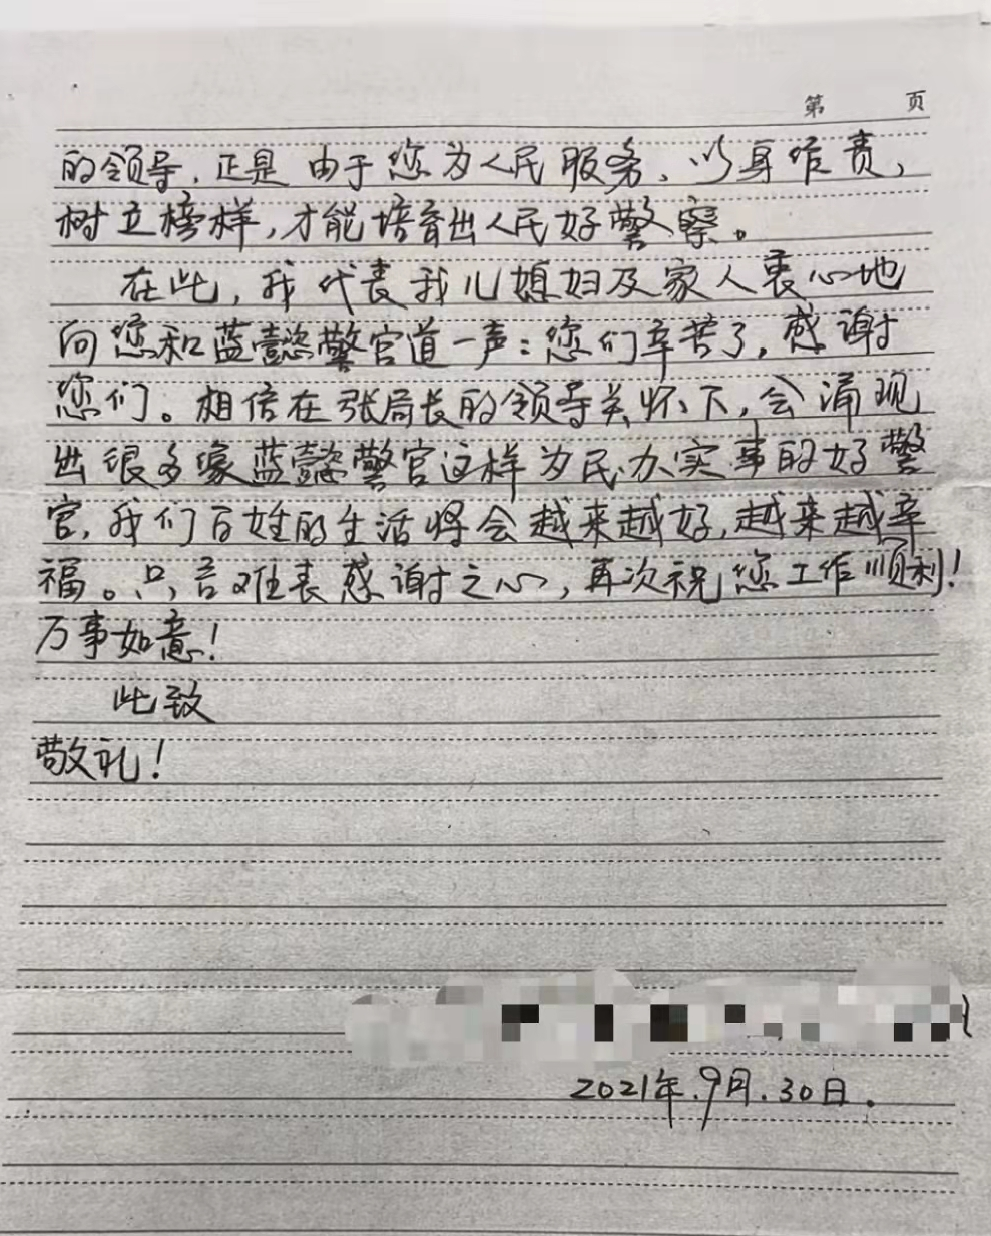 第 页
的领导,正是由于您为人民服务、以身作责,
树立榜样,才能培育出人民好警察。
在此,我代表我儿媳妇及家人衷心地
向您和蓝懿警官道一声:您们辛苦了,感谢
您们。相信在张局长的领导关怀下,会涌现
出很多像蓝懿警官这样为民办实事的好警
官,我们百姓的生活将会越来越好,越来越幸
福。只言难表感谢之心,再次祝您工作顺利!
万事如意!
此致
敬礼!
2021年.9月.30日.